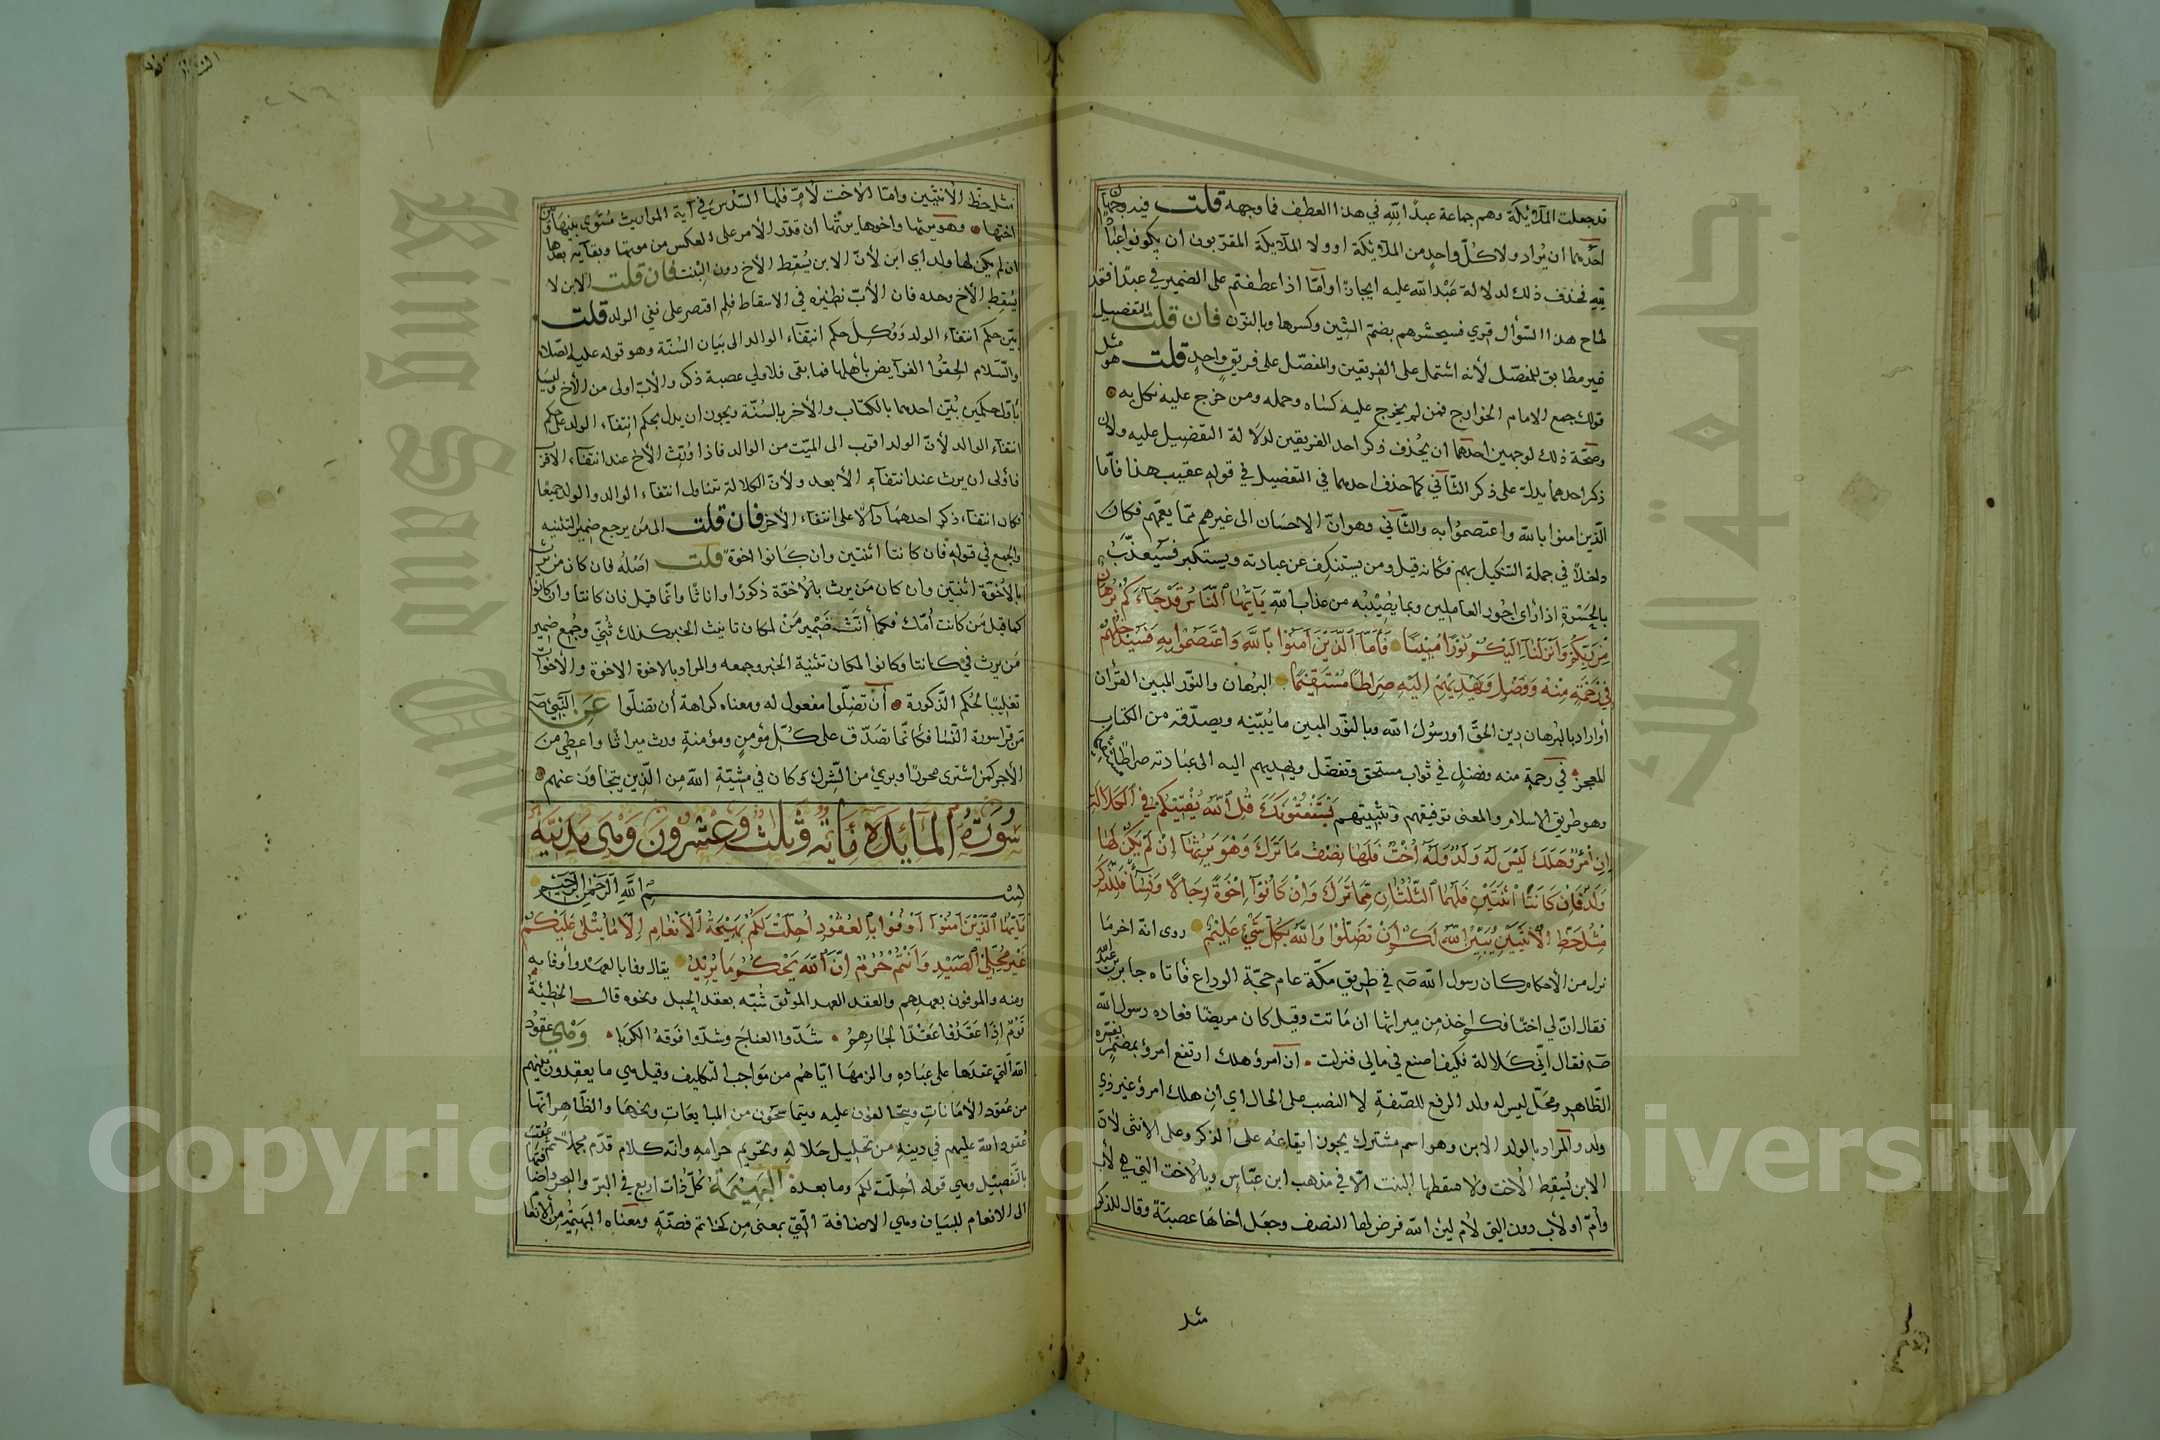 قد جعلت الملائكة وهم جماعة عبدًا لله في هذا العطف فما وجهه قلت فيه وجهان
احدهما ان يراد ولا كلّ واحد من الملائكة او ولا الملائكة المقربون ان يكونوا عبادا
لله فحذف ذلك لدلالة عبدا لله عليه ايجازا وامّا اذا عطفتم على الضمير في عبدا فقد
طاح هذا السؤال قرئ فسيحشرهم بضم الشين وكسرها وبالنون فان قلت التفصيل
غير مطابق للمفصّل لأنه اشتمل على الفريقين والمفصّل على فريق واحد قلت هو مثل
قولك جمع الامام الخوارج فمن لم يخرج عليه كساه وحمله ومن خرج عليه نكل به
وصحّة ذلك لوجهين احدهما ان يحذف ذكر احد الفريقين لدلالة التفصيل عليه ولان
ذكر احدهما يدل على ذكر الثاني كما حذف احدهما في التفصيل في قوله عقيب هذا فأمّا
الّذين امنوا بالله واعتصموا به والثاني وهو انّ الاحسان الى غيرهم ممّا يغمهم فكان
داخلا في جملة التنكيل بهم فكانه قيل ومن يستنكف عن عبادته ويستكبر فسيعذّب
بالحسرة اذا راى اجور العاملين وبما يصيبه من عذاب الله يَآ أَيُّهَا النَّاسُ قَدْ جَآءَكُمْ بُرْهَانٌ
مِّن رَّبِّكُمْ وَأَنْزَلْنَآ إِلَيْكُمْ نُورًا مُبِينًا فَأَمَّا الَّذِينَ آمَنُوا بِاللَّهِ وَاعْتَصَمُوا بِهِ فَسَيُدْخِلُهُمْ
فِي رَحْمَةٍ مِنْهُ وَفَضْلٍ وَيَهْدِيهِمْ إِلَيْهِ صِرَاطًا مُسْتَقِيمًا البرهان والنور المبين القرآن
أو اراد بالبرهان دين الحقّ او رسول الله وبالنّور المبين ما يبيّنه ويصدّقه من الكتاب
المعجز في رحمة منه وفضل في ثواب مستحق وتفضّل ويهديهم اليه الى عبادته صراطا مستقيما
وهو طريق الاسلام والمعنى توفيقهم وتثبيتهم يَسْتَفْتُونَكَ قُلِ اللَّهُ يُفْتِيكُمْ فِي الْكَلَالَةِ
إِنِ امْرُؤٌ هَلَكَ لَيْسَ لَهُ وَلَدٌ وَلَهُ أُخْتٌ فَلَهَا نِصْفُ مَا تَرَكَ وَهُوَ يَرِثُهَا إِنْ لَمْ يَكُنْ لَهَا
وَلَدٌ فَإِن كَانَتَا اثْنَتَيْنِ فَلَهُمَا الثُّلُثَانِ مِمَّا تَرَكَ وَإِنْ كَانُوا إِخْوَةً رِجَالًا وَنِسَاءً فَلِلذَّكَرِ
مِثْلُ حَظِّ الْأُنْثَيَيْنِ يُبَيِّنُ اللَّهُ لَكُمْ أَنْ تَضِلُّوا وَاللَّهُ بِكُلِّ شَيْءٍ عَلِيمٌ روى انه اخر ما
نزل من الاحكام كان رسول الله صه في طريق مكّة عام حجّة الوداع فأتاه جابر بن عبد الله
فقال انّ لي اختا فكم اخذ من ميراثها ان ماتت وقيل كان مريضا فعاده رسول الله
صه فقال انّي كلالة فكيف اصنع في مالي فنزلت ان امرؤ هلك ارتفع امرؤ بمضمر يفسّره
الظاهر ومحلّ ليس له ولد الرفع للصّفة لا النصب على الحال اي ان هلك امرؤ غير ذي
ولد والمراد بالولد الابن وهو اسم مشترك يجوز ايقاعه على الذكر وعلى الأنثى لأنّ
الابن يسقط الأخت ولا تسقطها البنت الاّ في مذهب ابن عبّاس وبالأخت التي هي لأب
وأمّ او لأب دون التي لأم لأن الله فرض لها النصف وجعل اخاها عصبة وقال للذكر
مثل
مثل حظ الانثيين وامّا الاخت لأم فلها السّدس في آية المواريث مسوّى بينها وبين
اخيها وهو يرثها واخوها يرثها ان قدّر الأمر على العكس من موتها وبقائه بعدها
ان لم يكن لها ولد اي ابن لأنّ الابن يسقط الأخ دون البنت فان قلت الابن لا
يسقط الأخ وحده فان الأب نظيره في الاسقاط فلم اقتصر على نفي الولد قلت
بيّن حكم انتفاء الولد ووكل حكم انتفاء الوالد الى بيان السنّة وهو قوله عليه الصّلاة
والسّلام الحقوا الفرآيض بأهلها فما بقى فلأولي عصبة ذكر والأب اولى من الأخ وليسا
بأوّل حكمين بُيّن احدهما بالكتاب والأخر بالسنّة ويجوز ان يدل بحكم انتفاء الولد على حكم
انتفاء الوالد لأنّ الولد اقرب الى الميّت من الوالد فاذا ورث الأخ عند انتفاء الاقرب
فأولى ان يرث عند انتفاء الأبعد ولأنّ الكلالة تتناول انتفاء الوالد والولد جميعا
فكان انتفاء ذكر احدهما دالا على انتفاء الآخر فان قلت الى من يرجع ضمير التثنيه
والجمع في قوله فان كانتا اثنتين وان كانوا اخوة قلت اصله فان كان من يرث
بالأخوّة اثنتين وان كان من يرث بالأخوّة ذكورا واناثا وانّما قيل فان كانتا وان كانوا
كما قيل من كانت أمّك فكما أنّث ضمير من لمكان تانيث الخبر كذلك ثنّي وجمع ضمير
من يرث في كانتا وكانوا لمكان تثنية الخبر وجمعه والمراد بالاخوة الاخوة والأخوات
تغليبا لحكم الذكورة أن تضلّوا مفعول له ومعناه كراهة أن تضلّوا عن النّبيّ صه
من قرأ سورة النّسا فكأنّما تصدّق على كلّ مؤمن ومؤمنة ورث ميراثا واعطي من
الأجر كمن اشترى محرّرا وبرئ من الشّرك وكان في مشيّة الله من الّذين يتجاوز عنهم
سُورَةُ الْمَآئِدَةِ مِائَةٌ وَثَلَاثٌ وَعِشْرُونَ وَهِيَ مَدَنِيَّةٌ
بسم الله الرحمن الرحيم
يَآ أَيُّهَا الَّذِينَ آمَنُوا أَوْفُوا بِالْعُقُودِ أُحِلَّتْ لَكُمْ بَهِيمَةُ الْأَنْعَامِ إِلَّا مَا يُتْلَى عَلَيْكُمْ
غَيْرَ مُحِلِّي الصَّيْدِ وَأَنْتُمْ حُرُمٌ إِنَّ اللَّهَ يَحْكُمُ مَا يُرِيدُ يقال وفا بالعهد واوفا به
ومنه والموفون بعهدهم والعقد العهد الموثق شُبّه بعقد الحبل ونحوه قال الحطيئة
قَوْمٌ إذا عَقَدُوا عَقْدًا لجارهم شدّوا العناج وشدّوا فوقه الكربا وهي عقود
الله التي عقدها على عباده والزمها ايّاهم من مواجب التكليف وقيل هي ما يعقدون بينهم
من عقود الأمانات ويتحالفون عليه ويتماسحون من المبايعات ونحوها والظاهر انّها
عقود الله عليهم في دينه من تحليل حلاله وتحريم حرامه وانّه كلام قدّم مجملا ثم عقّب
بالتّفصيل وهي قوله أحلّت لكم وما بعده البهيمة كلّ ذات اربع في البرّ والبحر واضافتها
الى الانعام للبيان وهي الاضافة الّتي بمعنى من كخاتم فضّة ومعناه البهيمة من الأنعام
Copyright © King Saud University
King Saud University
جامعة الملك سعود